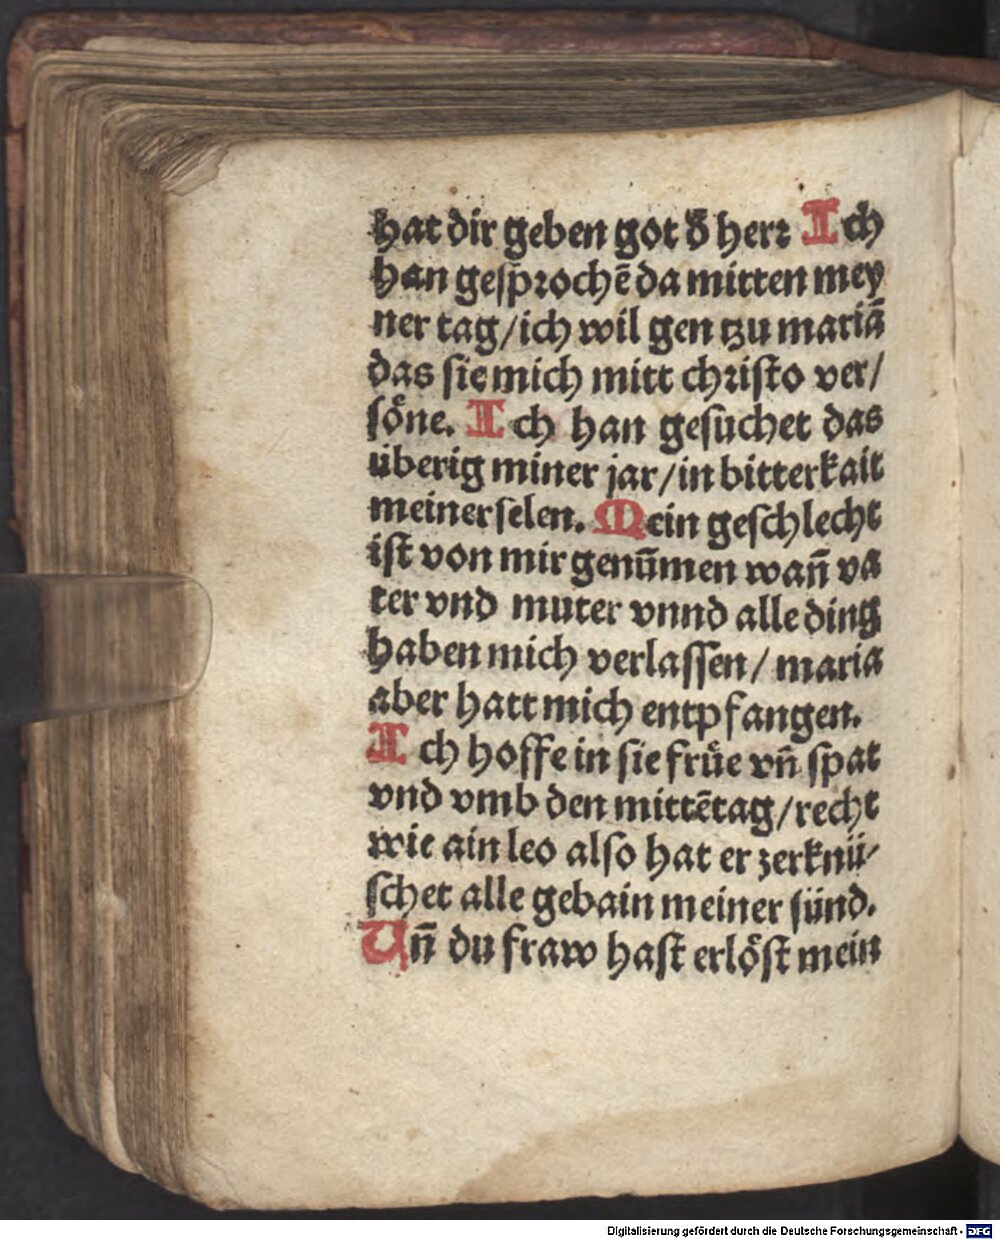 hat dir geben got d̄ herꝛ Ich
han geſpꝛochē da mitten mey
ner tag/ich wil gen tzu mariā
das ſie mich mitt chꝛiſto ver/
ſoͤne. Ich han geſuchet das
uͤberig miner jar/in bitterkait
meiner ſelen. Mein geſchlecht
iſt von mir genūmen wañ va
ter vnd muter vnnd alle ding
haben mich verlaſſen/ maria
aber hatt mich entpfangen.
Ich hoffe in ſie fruͤe vñ ſpat
vnd vmb den mittētag/recht
wie ain leo alſo hat er zerknü/
ſchet alle gebain meiner ſünd.
Uñ du fraw haſt erloͤſt mein
Digitalisierung gefördert durch die Deutsche Forschungsgemeinschaft - DFG